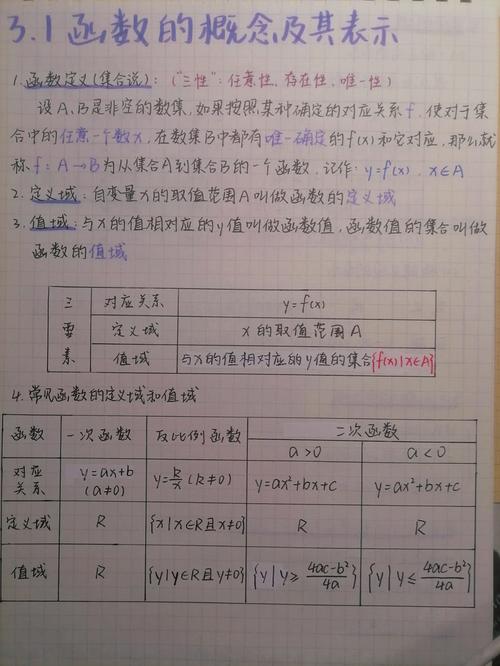 3.1 函数的概念及其表示
1. 函数定义(集合说):("三性":任意性, 存在性, 唯一性)
设A、B是非空的数集, 如果按照某种确定的对应关系f, 使对于集
合中的任意一个数x, 在数集B中都有唯一确定的f(x)和它对应, 那么就
称f:A→B为从集合A到集合B的一个函数, 记作:y=f(x), x∈A
2. 定义域:自变量x的取值范围A叫做函数的定义域
3. 值域:与x的值相对应的y值叫做函数值, 函数值的集合叫做
函数的值域
三要素
对应关系 y=f(x)
定义域 x的取值范围A
值域 与x的值相对应的y值的集合{f(x)|x∈A}
4. 常见函数的定义域和值域
函数 一次函数 反比例函数 二次函数
a>0 a<0
对应关系 y=ax+b (a≠0) y=k/x (k≠0) y=ax²+bx+c y=ax²+bx+c
定义域 R {x|x∈R且x≠0} R R
值域 R {y|y∈R且y≠0} {y|y≥(4ac-b²)/4a} {y|y≤(4ac-b²)/4a}